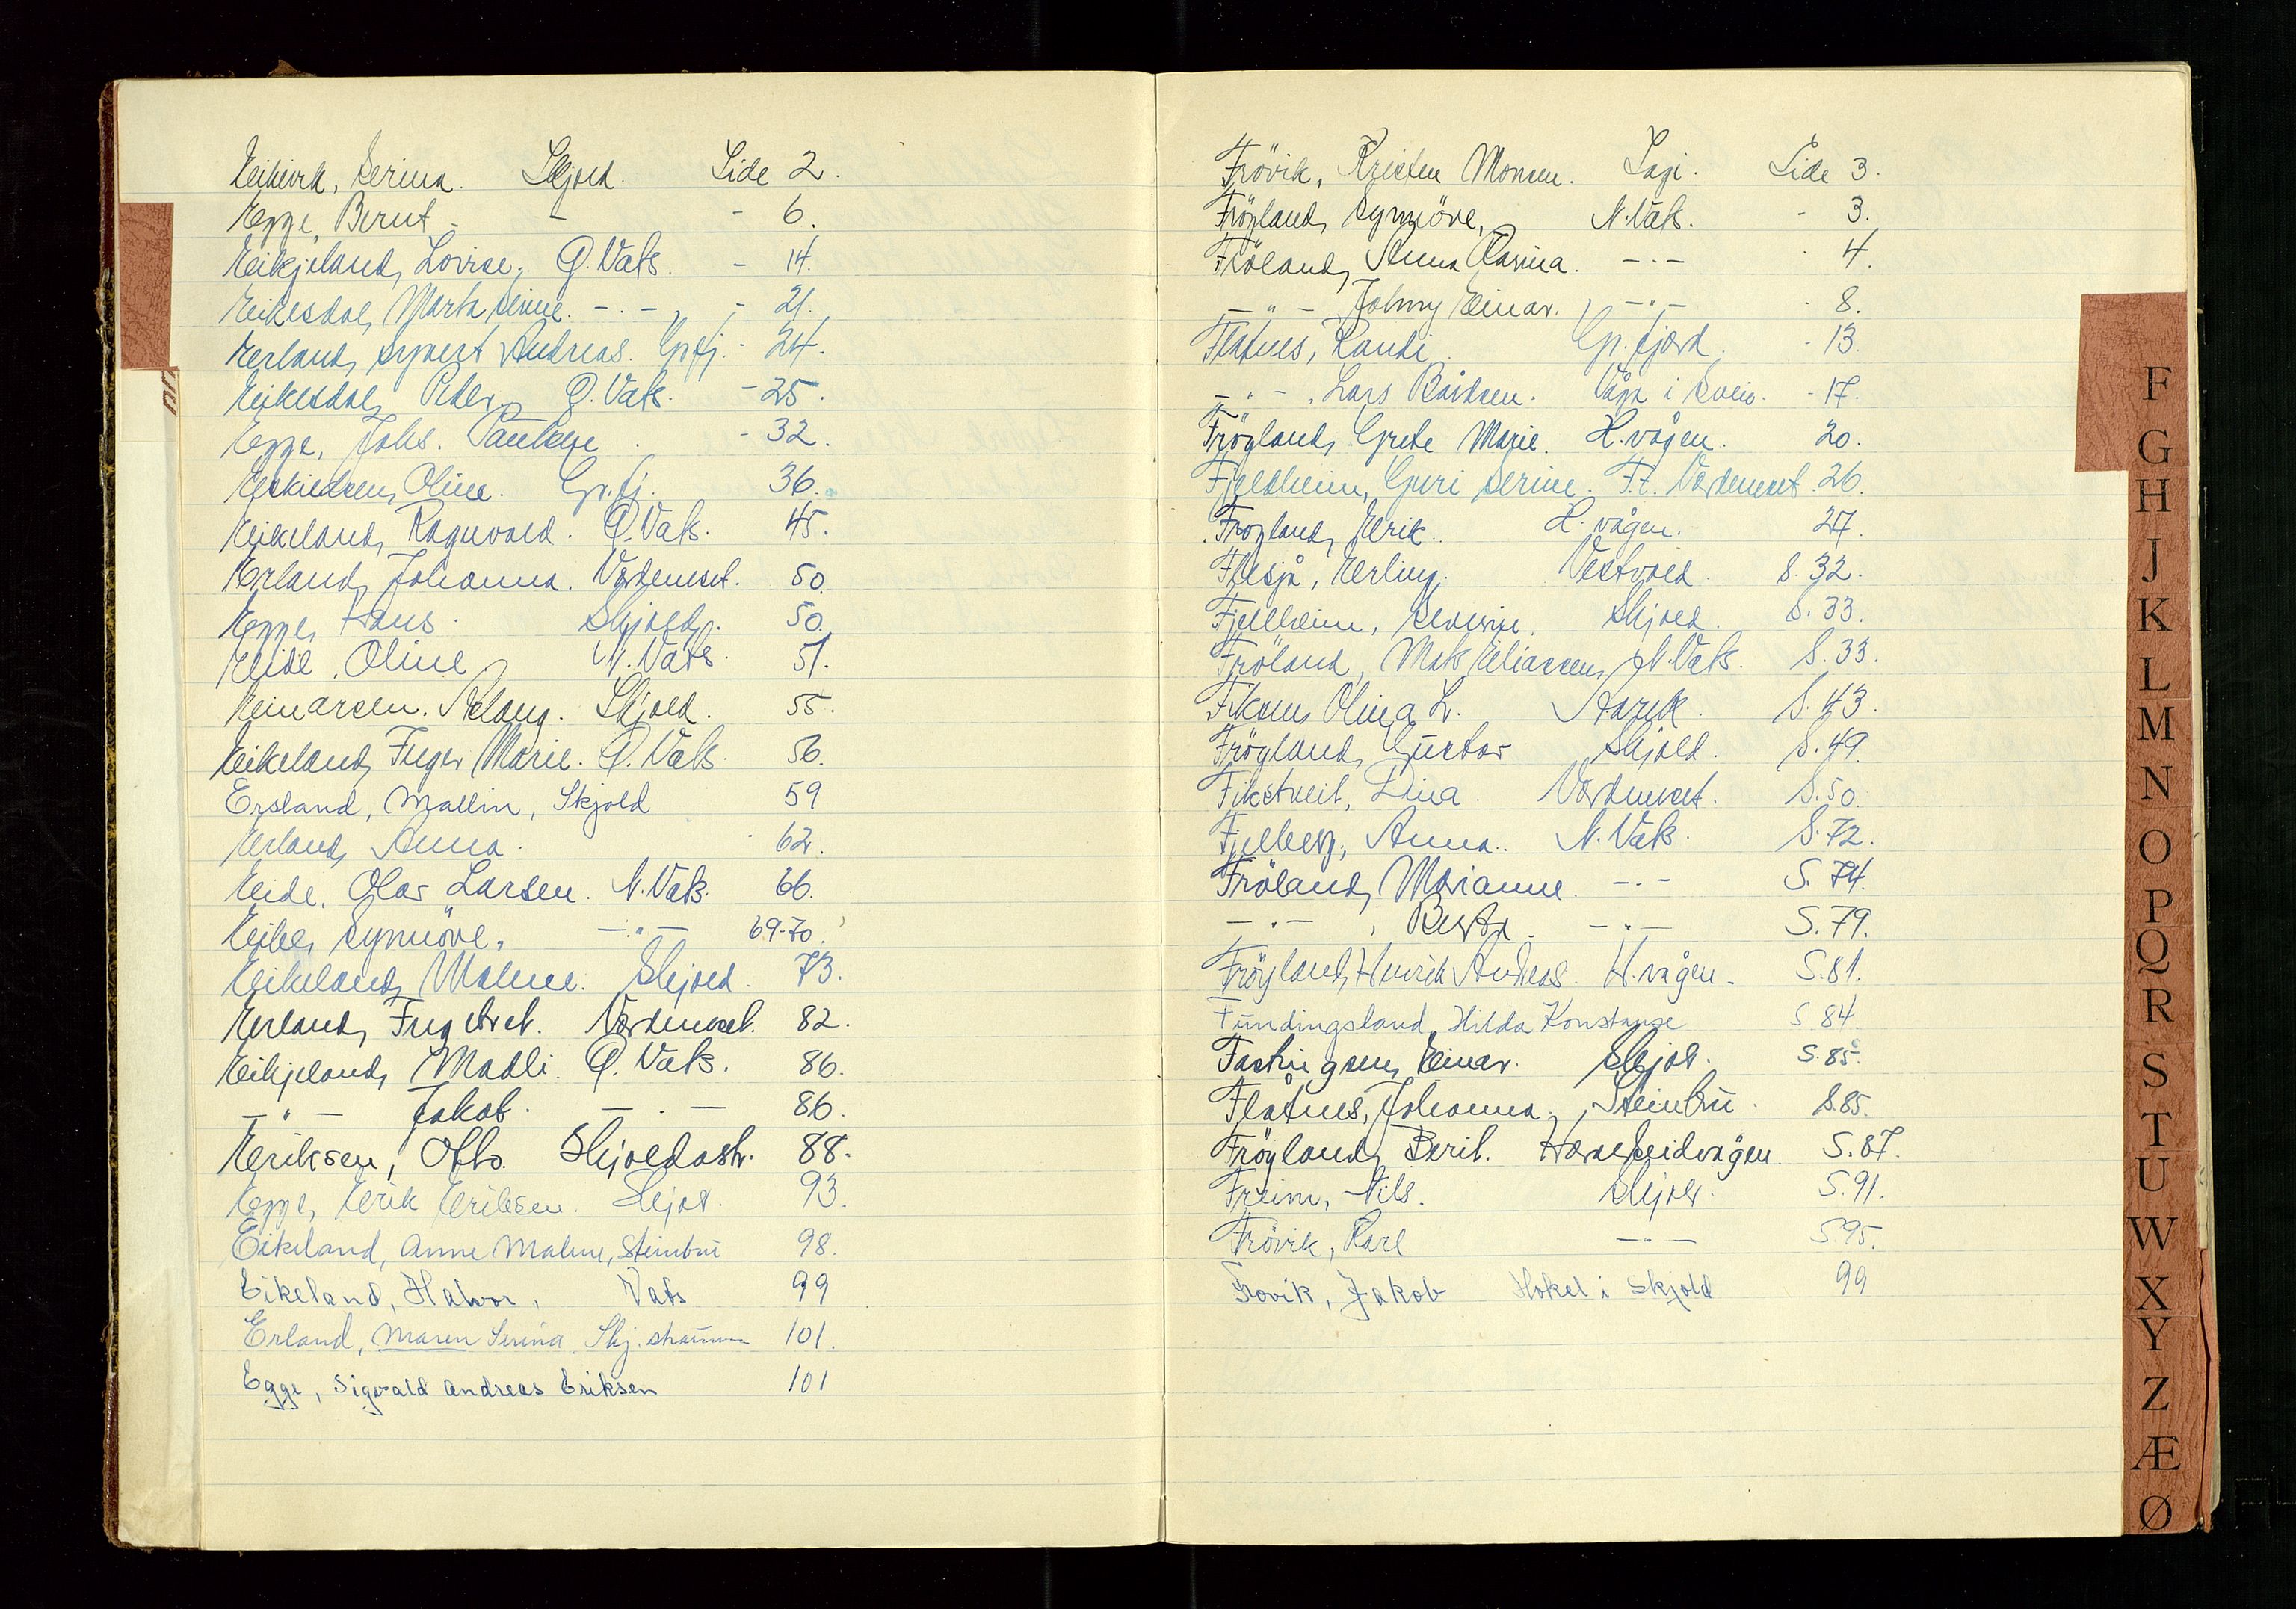 Eikevik, Serina. Skjold. Side 2.
Egge, Berut - - - 6.
Eikjeland, Lovise, Ø. Vats. - 14.
Eikesdal, Marta Serine. - . - , - 21.
Erland, Syvert Andreas. Gr.fj. - 24.
Eikesdal, Peder, Ø. Vats. - 25.
Egge, Johs. - 32.
Eskildsen, Oline. Gr.fj. 36.
Eikeland, Ragnvald. Ø. Vats. 45.
Erland, Johanna. Vårdeneset. 50.
Egge, Hans. Skjold. 50.
Eide, Oline, N. Vats. 51.
Einarsen. Aslaug. Skjold. 55.
Eikeland, Inger Marie. Ø. Vats. 56.
Ersland, Mallin, Skjold 59
Erland, Anna. 62.
Eide, Olav Larsen. N. Vats. 66.
Eike, Synnöve, - " - 69-70.
Eikeland, Malene. Skjold. 73.
Erland, Ingebret. Vårdeneset. 82.
Eikjeland, Madli. Ø. Vats. 86.
- " - Jakob. - . - 86.
Eriksen, Otto. Skjoldastr. 88.
Egge, Erik Eriksen. Skjol. 93.
Eikeland, Anne Malene, Steinbru 98.
Eikeland, Halvor, Vats 99
Erland, Maren Serina, Skj. straumen 101.
Egge, Sigvald Andreas Eriksen 101
Frövik, Kristen Monsen. Side 3.
Fröyland, Synnöve, N. Vats. - 3.
Fröland, Anna Karina. - . - - 4.
- " - Johnny Einar. , - " - - 8.
Flatnes, Randi. Gr. fjord. - 13.
- " - , Lars Bårdsen. Våga i Sveio. - 17.
Fröyland, Grete Marie. H. vågen. 20.
Fjeldheim, Guri Serine. F.t. Vårdeneset. 26.
Fröyland, Erik. H. vågen. 27.
Flesjå, Erling. Vestvold. S. 32.
Fjellheim, Severin. Skjold. S. 33.
Fröland, Mats Eliassen, N. Vats. S. 33.
Fikse, Olina L. Aarek. S. 43.
Fröyland, Gustav Skjold. S. 49.
Fikstveit, Dina. Vårdeneset. S. 50.
Fjelberg, Anna. N. Vats. S. 72.
Fröland, Marianne. - . - S. 74.
- " - , Berta. - " - S. 79.
Fröyland, Henrik Andreas. H. vågen. S. 81.
Fundingsland, Hilda Konstanse S 84.
Fastingsen, Einar. Skjol. S. 85.
Flåtnes, Johanna, Steinbru. S. 85.
Fröyland, Berit. Hordneidvågen. S. 87.
Freim, Nils. Skjold. S. 91.
Frövik, Karl - " - S. 95.
Frövik, Jakob Hokel i Skjold 99
F
G
H
J
K
L
M
N
O
P
Q
R
S
T
U
W
X
Y
Z
Æ
Ø